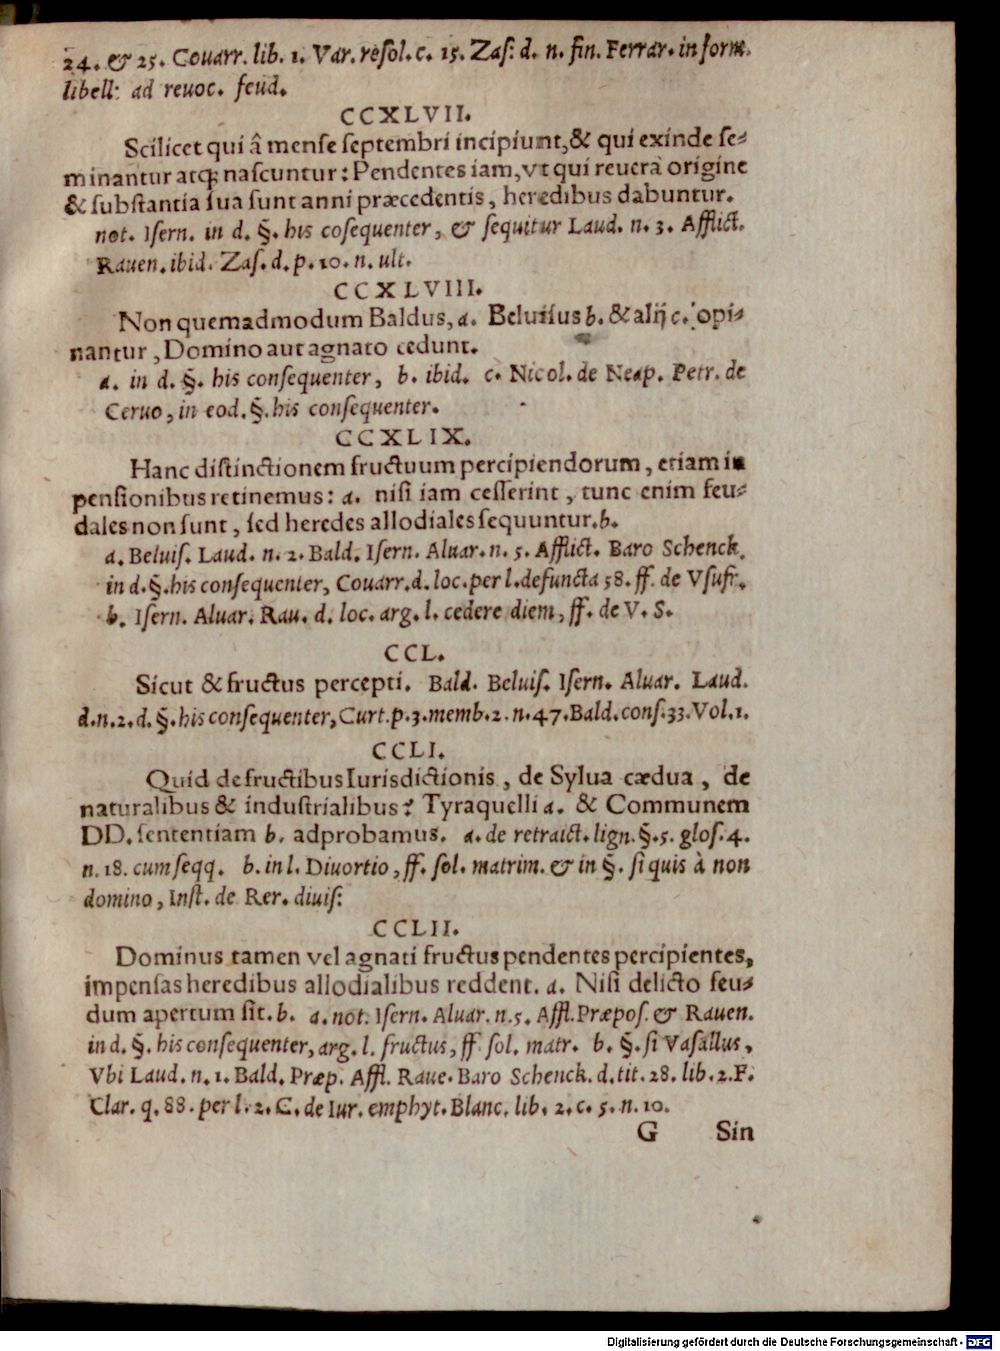 24. & 25. Couarr. lib. 1. Var. resol. c. 15. Zas: d. n. fin. Ferrar. in form.
libell: ad reuoc. feud.
CCXLVII.
Scilicet qui â mense septembri incipiunt, & qui exinde se-
minantur atq; nascuntur: Pendentes iam, vt qui reuera origine
& substantia sua sunt anni præcedentis, heredibus dabuntur.
not. Isern. in d. §. his cosequenter, & sequitur Laud. n. 3. Afflict.
Rauen. ibid. Zas. d. p. 10. n. ult.
CCXLVIII.
Non quemadmodum Baldus, a. Beluisius b. & alij c. opi-
nantur, Domino aut agnato cedunt.
a. in d. §. his consequenter, b. ibid. c. Nicol. de Neap. Petr. de
Ceruo, in eod. §. his consequenter.
CCXLIX.
Hanc distinctionem fructuum percipiendorum, etiam in
pensionibus retinemus: a. nisi iam cesserint, tunc enim feu-
dales non sunt, sed heredes allodiales sequuntur. b.
a. Beluis. Laud. n. 2. Bald. Isern. Aluar. n. 5. Afflict. Baro Schenck.
in d. §. his consequenter, Couarr. d. loc. per l. defuncta 58. ff. de Vsufr.
b. Isern. Aluar. Rau. d. loc. arg. l. cedere diem, ff. de V. S.
CCL.
Sicut & fructus percepti. Bald. Beluis. Isern. Aluar. Laud.
d. n. 2. d. §. his consequenter, Curt. p. 3. memb. 2. n. 47. Bald. cons. 33. Vol. 1.
CCLI.
Quid de fructibus Iurisdictionis, de Sylua cædua, de
naturalibus & industrialibus? Tyraquelli a. & Communem
DD. sententiam b. adprobamus. a. de retraict. lign. §. 5. glos. 4.
n. 18. cum seqq. b. in l. Diuortio, ff. sol. matrim. & in §. si quis à non
domino, Inst. de Rer. diuis:
CCLII.
Dominus tamen vel agnati fructus pendentes percipientes,
impensas heredibus allodialibus reddent. a. Nisi delicto feu-
dum apertum sit. b. a. not. Isern. Aluar. n. 5. Affl. Præpos. & Rauen.
in d. §. his consequenter, arg. l. fructus, ff sol. matr. b. §. si Vasallus,
Vbi Laud. n. 1. Bald. Præp. Affl. Raue. Baro Schenck. d. tit. 28. lib. 2. F.
Clar. q. 88. per l. 2. C. de Iur. emphyt. Blanc. lib. 2. c. 5. n. 10.
G Sin
Digitalisierung gefördert durch die Deutsche Forschungsgemeinschaft - DFG